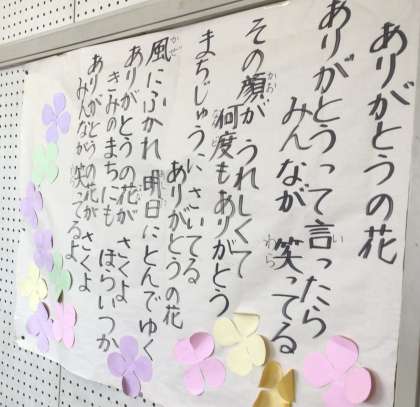 ありがとうの花
ありがとうって言ったら
みんなが 笑ってる
その顔が うれしくて
何度もありがとう
まちじゅうに さいてる
ありがとうの花
風にふかれ 明日にとんでゆく
ありがとうの花が さくよ
きみのまちにも ほらいつか
ありがとうの花が さくよ
みんなが 笑ってるよ